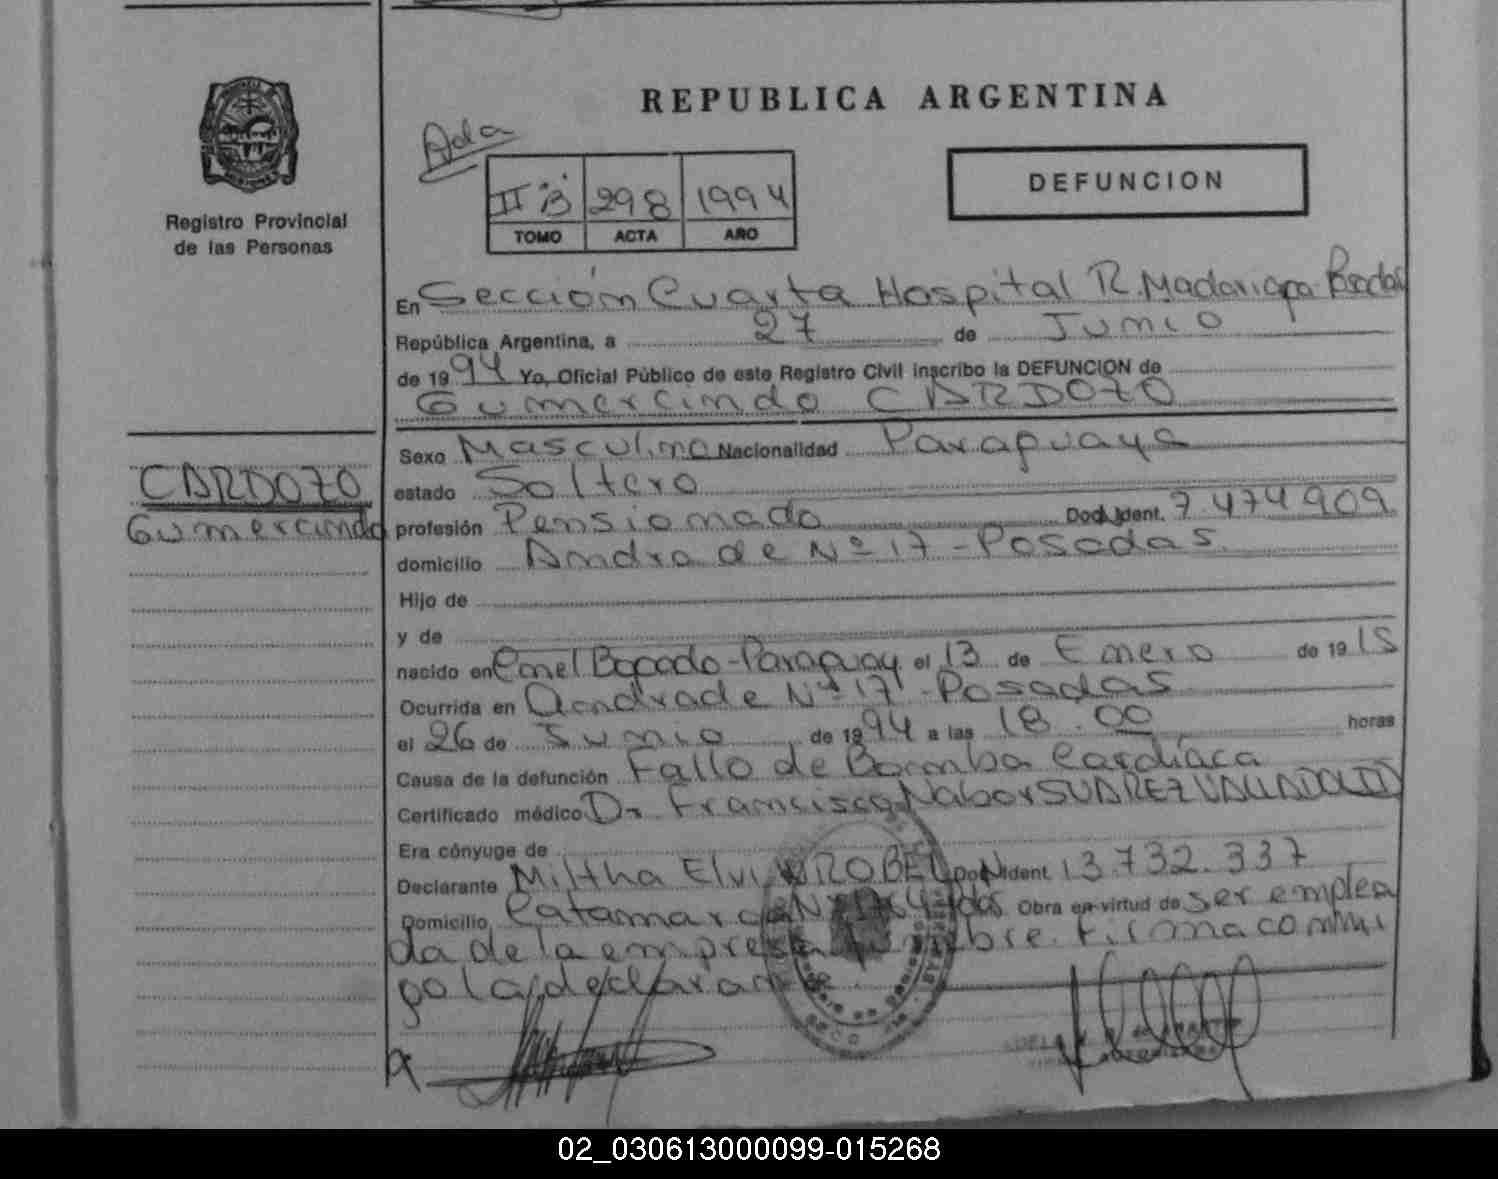 REPUBLICA ARGENTINA
Ada
II "B" 298 1994
TOMO ACTA AÑO
DEFUNCION
Registro Provincial
de las Personas
En Sección Cuarta Hospital R. Madariaga
República Argentina, a 27 de Junio
de 1994 Yo, Oficial Público de este Registro Civil inscribo la DEFUNCION de
Gumercindo CARDOZO
CARDOZO
Gumercindo
Sexo Masculino Nacionalidad Paraguaya
estado Soltero
profesión Pensionado Doc. Ident. 7.474.909
domicilio Andrade Nº 17 - Posadas
Hijo de
y de
nacido en Cnel Bogado - Paraguay el 13 de Enero de 1915
Ocurrida en Andrade Nº 17 - Posadas
el 26 de Junio de 1994 a las 18.00 horas
Causa de la defunción Fallo de Bomba Cardíaca
Certificado médico Dr. Francisco Nabor SUAREZ VALLADOLID
Era cónyuge de
Declarante Miltha Elvi WROBEL Doc. Ident. 13.732.337
Domicilio Catamarca Obra en virtud de ser emplea
da de la empresa fúnebre. Firma conmi
go la declarante.
02_030613000099-015268